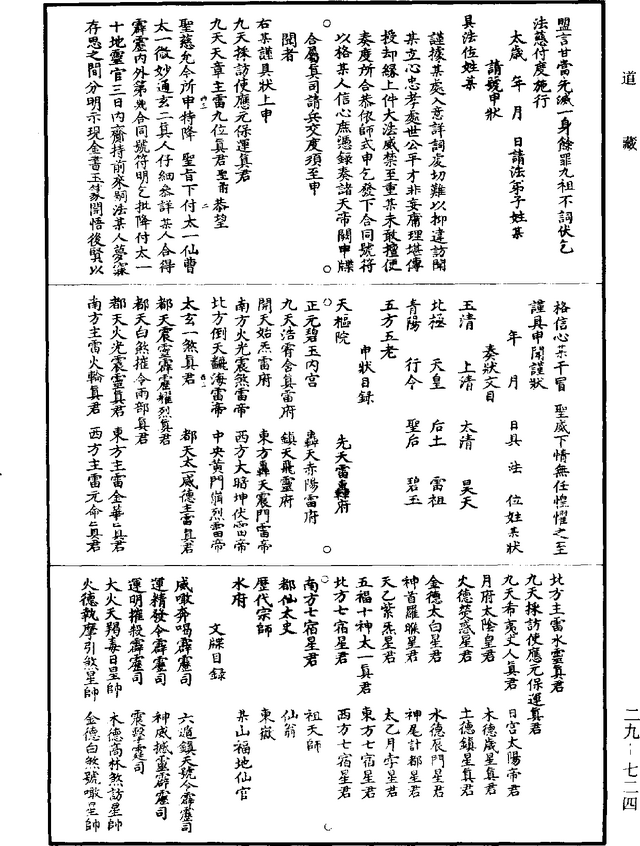 道藏
盟言甘當先滅一身餘罪九祖不詞伏乞
法慈付度施行
太歲 年 月 日請法弟子姓某
請號申狀
具法位姓某
謹據某處入意詳詞處切難以抑違訪聞
某立心忠孝處世公平才非妄庸理堪傳
授却緣上件大法威禁至重某未敢擅便
奏度所合恭依師式申乞發下合同號符
以格某人信心庶憑錄奏諸天帝闕申牒
合屬真司請兵交度須至申
聞者
右某謹具狀上申
九天採訪使應元保運真君
九天天章主雷九位真君聖前恭望
聖慈允令所申特降 聖旨下付太一仙曹
太一微妙通玄二真人仔細參詳某人合得
霹靂內外第幾合同號符明乞批降付太一
十地靈官三日內齎持前來嗣法某人夢寐
存思之間分明示現金書玉篆開悟後賢以
格信心某干冒 聖威下情無任惶懼之至
謹具申聞謹狀
年 月 日具 法 位姓某狀
奏狀文目
玉清 上清 太清 昊天
北極 天皇 后土 雷祖
青陽 行令 聖后 碧玉
五方五老
申狀目錄
天樞院 先天雷轟府
正元碧玉內宮 轟天赤陽雷府
九天浩霄含真雷府 鎮天飛靈府
開天始炁雷府 東方轟天震門雷帝
南方火光震煞雷帝 西方大暗坤伏雷帝
北方倒天翻海雷帝 中央黃門崩烈雷帝
太玄一煞真君 都天太一威德主雷真君
都天震靈霹靂耀烈真君
都天白煞摧令雨部真君
都天火光震靈真君 東方主雷金華上真君
南方主雷火輪真君 西方主雷元命上真君
北方主雷水靈真君
九天採訪使應元保運真君
九天布夷丈人真君 日宮太陽帝君
月府太陰皇君 木德歲星真君
火德熒惑星君 土德鎮星真君
金德太白星君 水德辰門星君
神首羅睺星君 神尾計都星君
天乙紫炁星君 太乙月孛星君
五福十神太一真君 東方七宿星君
北方七宿星君 西方七宿星君
南方七宿星君 祖天師
都仙太史 仙翁
歷代宗師 東嶽
水府 某山福地仙官
文牒目錄
威噉奔喝霹靂司 六通鎮天號令霹靂司
運精發令霹靂司 神威撼靈霹靂司
運明摧殺霹靂司 震擊霆司
大火天羯毒日星帥 木德高林煞訪星帥
火德執摩引煞星帥 金德白煞號噉星帥
二九–七二四